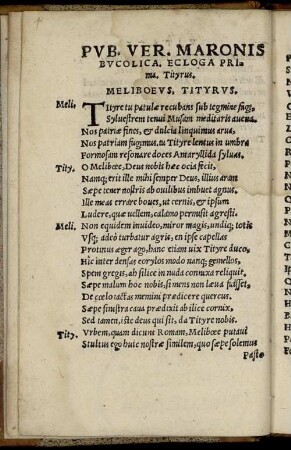 PVB. VER. MARONIS
BVCOLICA. ECLOGA PRI-
ma. Tityrus.
MELIBOEVS, TITYRVS.
Meli. Tityre tu patulæ recubans sub tegmine fagi,
Syluestrem tenui Musam meditaris auena.
Nos patriæ fines, & dulcia linquimus arua,
Nos patriam fugimus, tu Tityre lentus in umbra
Formosam resonare doces Amaryllida syluas.
Tity. O Melibœe, Deus nobis hæc ocia fecit,
Namq; erit ille mihi semper Deus, illius aram
Sæpe tener nostris ab ouilibus imbuet agnus.
Ille meas errare boues, ut cernis, & ipsum
Ludere, quæ uellem, calamo permisit agresti.
Meli. Non equidem inuideo, miror magis, undiq; totis
Vsq; adeò turbatur agris, en ipse capellas
Protinus æger ago, hanc etiam uix Tityre duco,
Hic inter densas corylos modo namq; gemellos,
Spem gregis, ah silice in nuda connixa reliquit,
Sæpe malum hoc nobis, si mens non læua fuisset,
De cœlo tactas memini prædicere quercus.
Sæpe sinistra caua prædixit ab ilice cornix,
Sed tamen, iste deus qui sit, da Tityre nobis.
Tity. Vrbem, quam dicunt Romam, Melibœe putaui
Stultus ego huic nostræ similem, quo sæpe solemus
Pasto